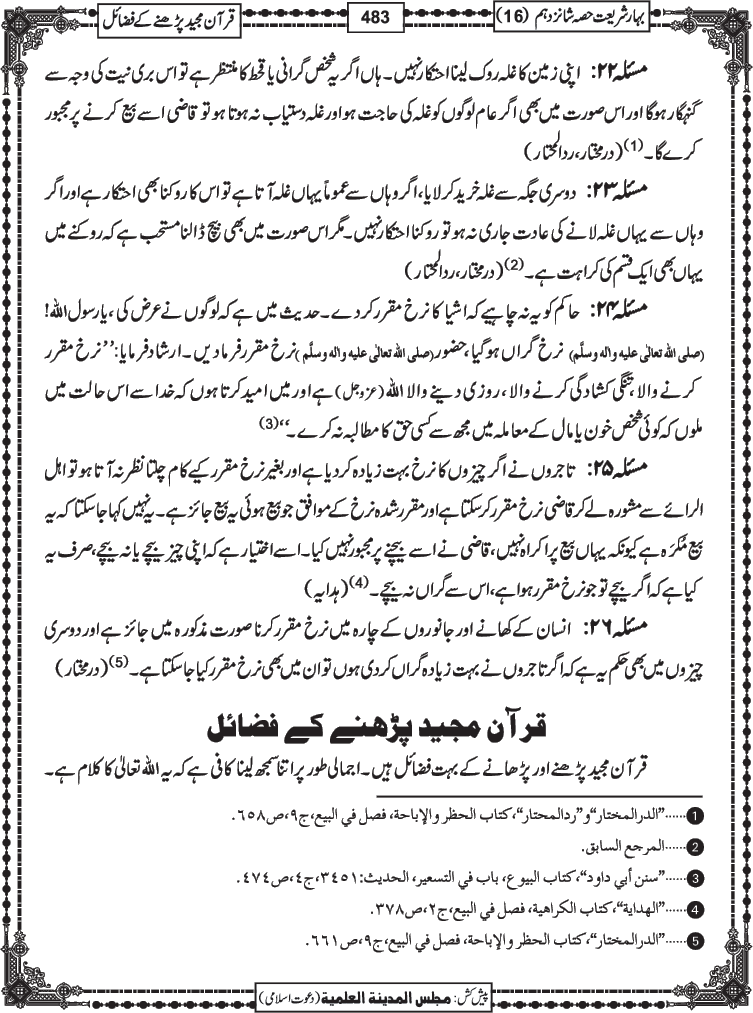 بہارشریعت حصہ شانزدہم (16)
483
قرآن مجید پڑھنے کے فضائل
مسئلہ ۲۲: اپنی زمین کا غلہ روک لینا احتکار نہیں۔ ہاں اگر یہ شخص گرانی یا قحط کا منتظر ہے تو اس بری نیت کی وجہ سے
گنہگار ہوگا اور اس صورت میں بھی اگر عام لوگوں کو غلہ کی حاجت ہو اور غلہ دستیاب نہ ہوتا ہو تو قاضی اسے بیع کرنے پر مجبور
کرے گا۔(1) (درمختار، ردالمحتار)
مسئلہ ۲۳: دوسری جگہ سے غلہ خرید کر لایا، اگر وہاں سے عموماً یہاں غلہ آتا ہے تو اس کا روکنا بھی احتکار ہے اور اگر
وہاں سے یہاں غلہ لانے کی عادت جاری نہ ہو تو روکنا احتکار نہیں۔ مگر اس صورت میں بھی بیچ ڈالنا مستحب ہے کہ روکنے میں
یہاں بھی ایک قسم کی کراہت ہے۔(2) (درمختار، ردالمحتار)
مسئلہ ۲۴: حاکم کو یہ نہ چاہیے کہ اشیا کا نرخ مقرر کردے۔ حدیث میں ہے کہ لوگوں نے عرض کی، یارسول اللہ!
(صلی اللہ تعالیٰ علیہ واٰلہ وسلّم) نرخ گراں ہوگیا، حضور (صلی اللہ تعالیٰ علیہ واٰلہ وسلّم) نرخ مقرر فرمادیں۔ ارشاد فرمایا: ’’نرخ مقرر
کرنے والا، تنگی کشادگی کرنے والا، روزی دینے والا اللہ (عزوجل) ہے اور میں امید کرتا ہوں کہ خدا سے اس حالت میں
ملوں کہ کوئی شخص خون یا مال کے معاملہ میں مجھ سے کسی حق کا مطالبہ نہ کرے۔‘‘(3)
مسئلہ ۲۵: تاجروں نے اگر چیزوں کا نرخ بہت زیادہ کردیا ہے اور بغیر نرخ مقرر کیے کام چلتا نظر نہ آتا ہو تو اہل
الرائے سے مشورہ لے کر قاضی نرخ مقرر کرسکتا ہے اور مقرر شدہ نرخ کے موافق جو بیع ہوئی یہ بیع جائز ہے۔ یہ نہیں کہا جاسکتا کہ یہ
بیع مُکرَہ ہے کیونکہ یہاں بیع پر اکراہ نہیں، قاضی نے اسے بیچنے پر مجبور نہیں کیا۔ اسے اختیار ہے کہ اپنی چیز بیچے یا نہ بیچے، صرف یہ
کیا ہے کہ اگر بیچے تو جو نرخ مقرر ہوا ہے، اس سے گراں نہ بیچے۔(4) (ہدایہ)
مسئلہ ۲۶: انسان کے کھانے اور جانوروں کے چارہ میں نرخ مقرر کرنا صورت مذکورہ میں جائز ہے اور دوسری
چیزوں میں بھی حکم یہ ہے کہ اگر تاجروں نے بہت زیادہ گراں کردی ہوں تو ان میں بھی نرخ مقرر کیا جاسکتا ہے۔(5) (درمختار)
قرآن مجید پڑھنے کے فضائل
قرآن مجید پڑھنے اور پڑھانے کے بہت فضائل ہیں۔ اجمالی طور پر اتنا سمجھ لینا کافی ہے کہ یہ اللہ تعالیٰ کا کلام ہے۔
1 ......”الدرالمختار“و”ردالمحتار“، کتاب الحظر والإباحة، فصل في البیع، ج۹، ص۶۵۸.
2 ......المرجع السابق.
3 ......”سنن أبي داود“، کتاب البیوع، باب في التسعیر، الحدیث: ۳۴۵۱، ج۴، ص۴۷۴.
4 ......”الهدایة“، کتاب الکراهیة، فصل في البیع، ج۲، ص۳۷۸.
5 ......”الدرالمختار“، کتاب الحظر والإباحة، فصل في البیع، ج۹، ص۶۶۱.
پیش کش: مجلس المدینة العلمیة (دعوت اسلامی)